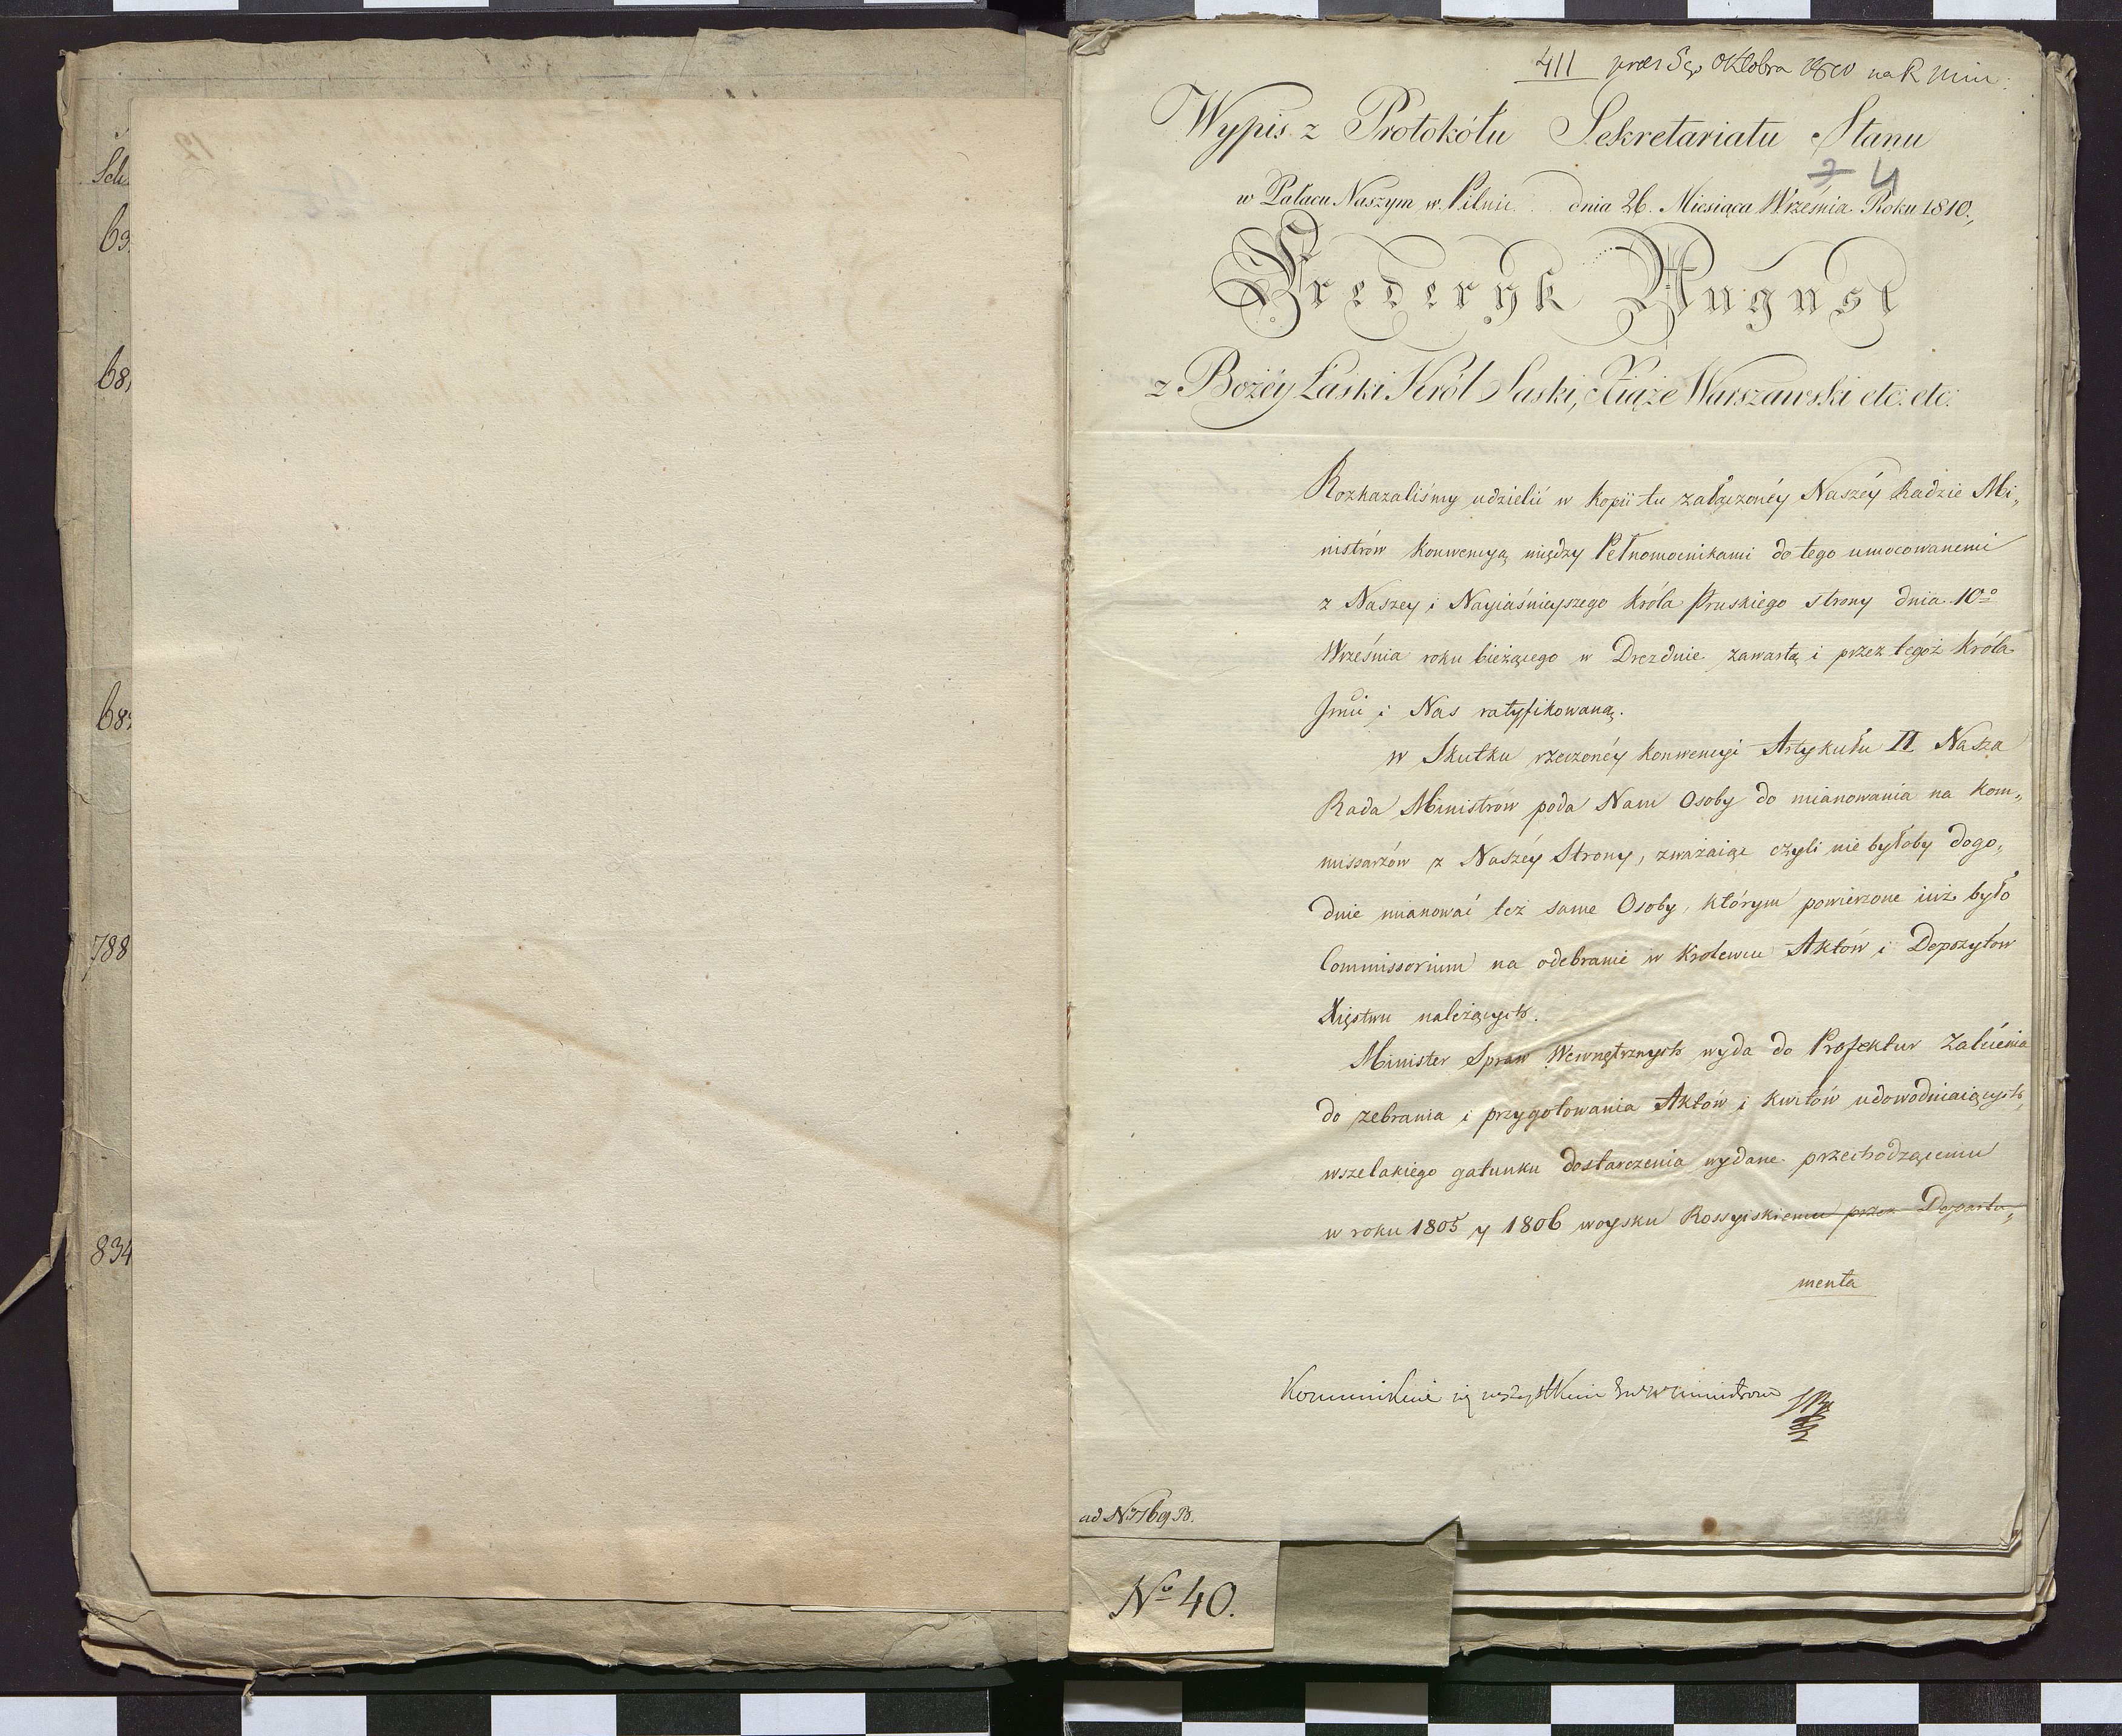 Sch
63
68
68
788
834
411 prod 5go Oktobra 1810 na R Min:
Wypis z Protokółu Sekretariatu Stanu
7 4
w Pałacu Naszym w Pilnic dnia 26. Miesiąca Września Roku 1810.
Fryderyk August
z Bożéy Łaski Król Saski, Xiąże Warszawski etc: etc:
Rozkazaliśmy udzielić w kopii tu załączonéy Naszéy Radzie Mi„
nistrów konwencyą między Pełnomocnikami do tego umocowanemi
z Naszey i Nayiaśnieyszego Króla Pruskiego strony dnia 10º
Września roku bieżącego w Dreznie zawartą i przez tegoż Króla
Jmci i Nas ratyfikowaną.
w Skutku rzeczonéy konwencyi Artykułu II Nasza
Rada Ministrów poda Nam Osoby do mianowania na Kom„
missarzów z Naszéy Strony, zważaiąc czyli nie byłoby dogo„
dnie mianować też same Osoby, którym powierzone iuż było
Commissorium na odebranie w Krolewcu Aktów i Depozytów
Xięstwu należących.
Minister Spraw Wewnętrznych wyda do Prefektur Zalecenia
do zebrania i przygotowania Aktów i Kwitów udowodniaiących,
wszelakiego gatunku dostarczenia wydane przechodzącemu
w roku 1805 y 1806 woysku Rossyiskiemu przez Departa„
menta
Kommunikuie się wszystkim Ministrom
ad Nr 769 B.
No 40.